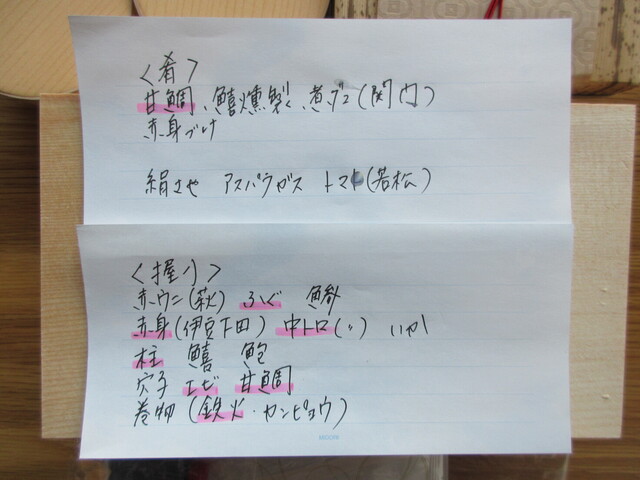 <肴>
甘鯛、鱚燻製、煮ダコ(関門)
赤身づけ
絹さや アスパラガス トマト(若松)
<握り>
赤ウニ(萩) ふぐ 鯵
赤身(伊豆下田) 中トロ(〃) いわし
柱 鱚 鮑
穴子 エビ 甘鯛
巻物(鉄火・カンピョウ)